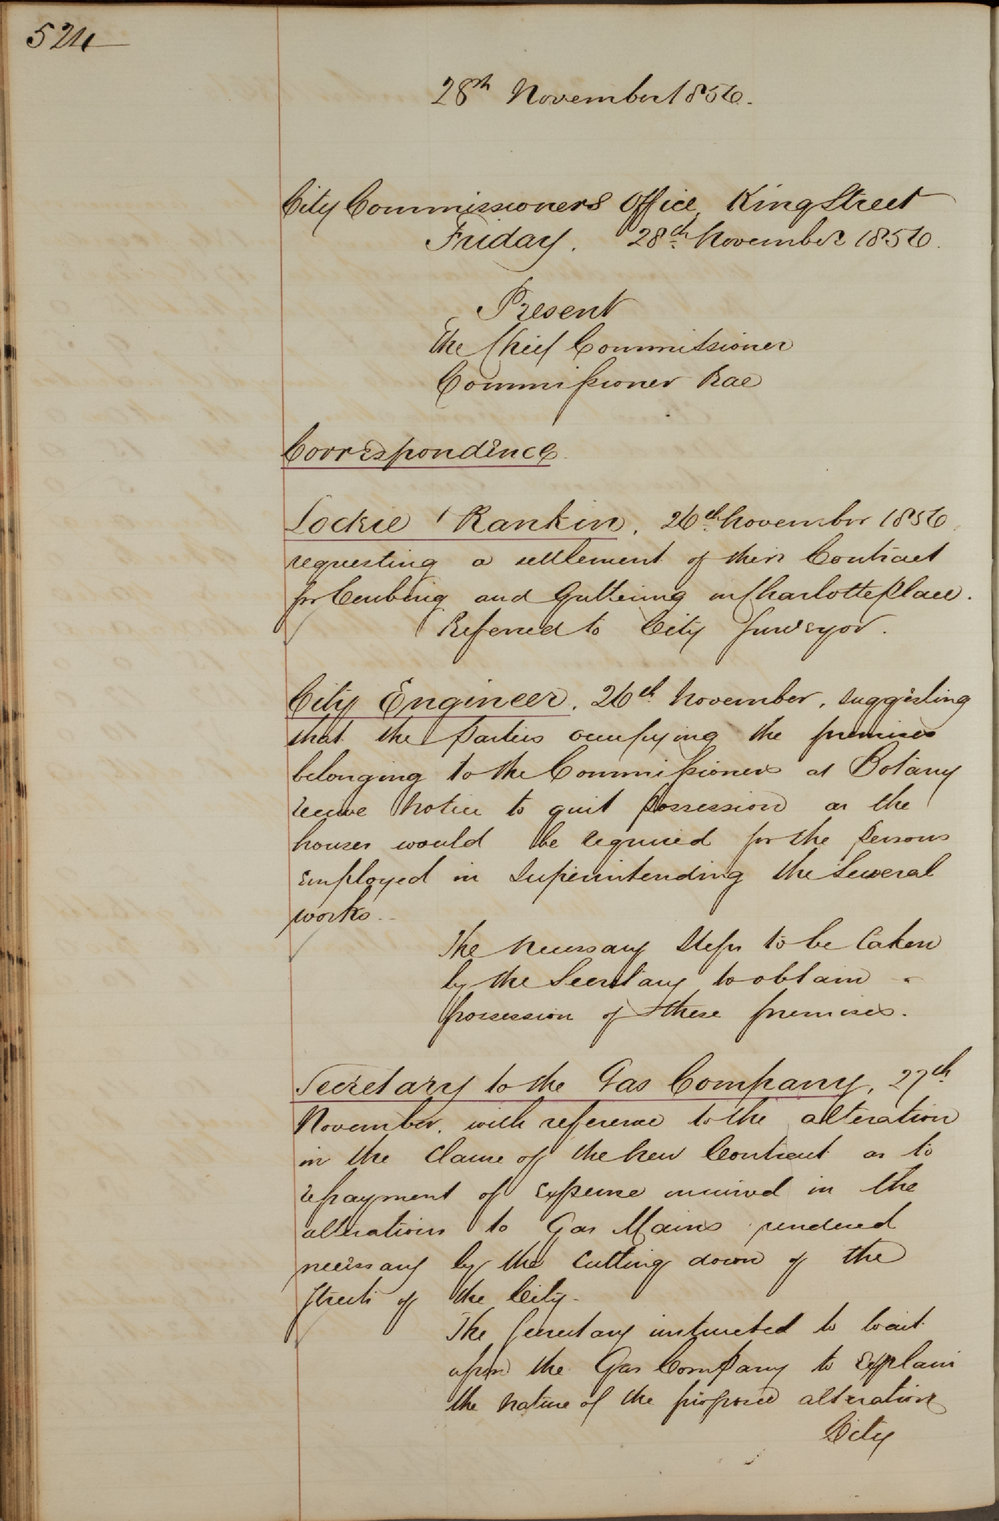 524
28th November 1856.
City Commissioners Office, King Street
Friday. 28th November 1856.
Present
The Chief Commissioner
Commissioner Rae
Correspondence.
Lockie & Rankin, 26th November 1856
requesting a settlement of their Contract
for Curbing and Guttering in Charlotte place.
Referred to City Surveyor.
City Engineer, 26th November, suggesting
that the parties occupying the premises
belonging to the Commissioners at Botany
receive notice to quit possession as the
houses would be required for the persons
employed in superintending the several
works.
The necessary steps to be taken
by the Secretary to obtain
possession of these premises.
Secretary to the Gas Company, 27th
November, with reference to the alteration
in the Clause of the new Contract as to
repayment of expense incurred in the
alterations to Gas Mains rendered
necessary by the cutting down of the
streets of the City.
The Secretary instructed to wait
upon the Gas Company to explain
the nature of the proposed alteration
City